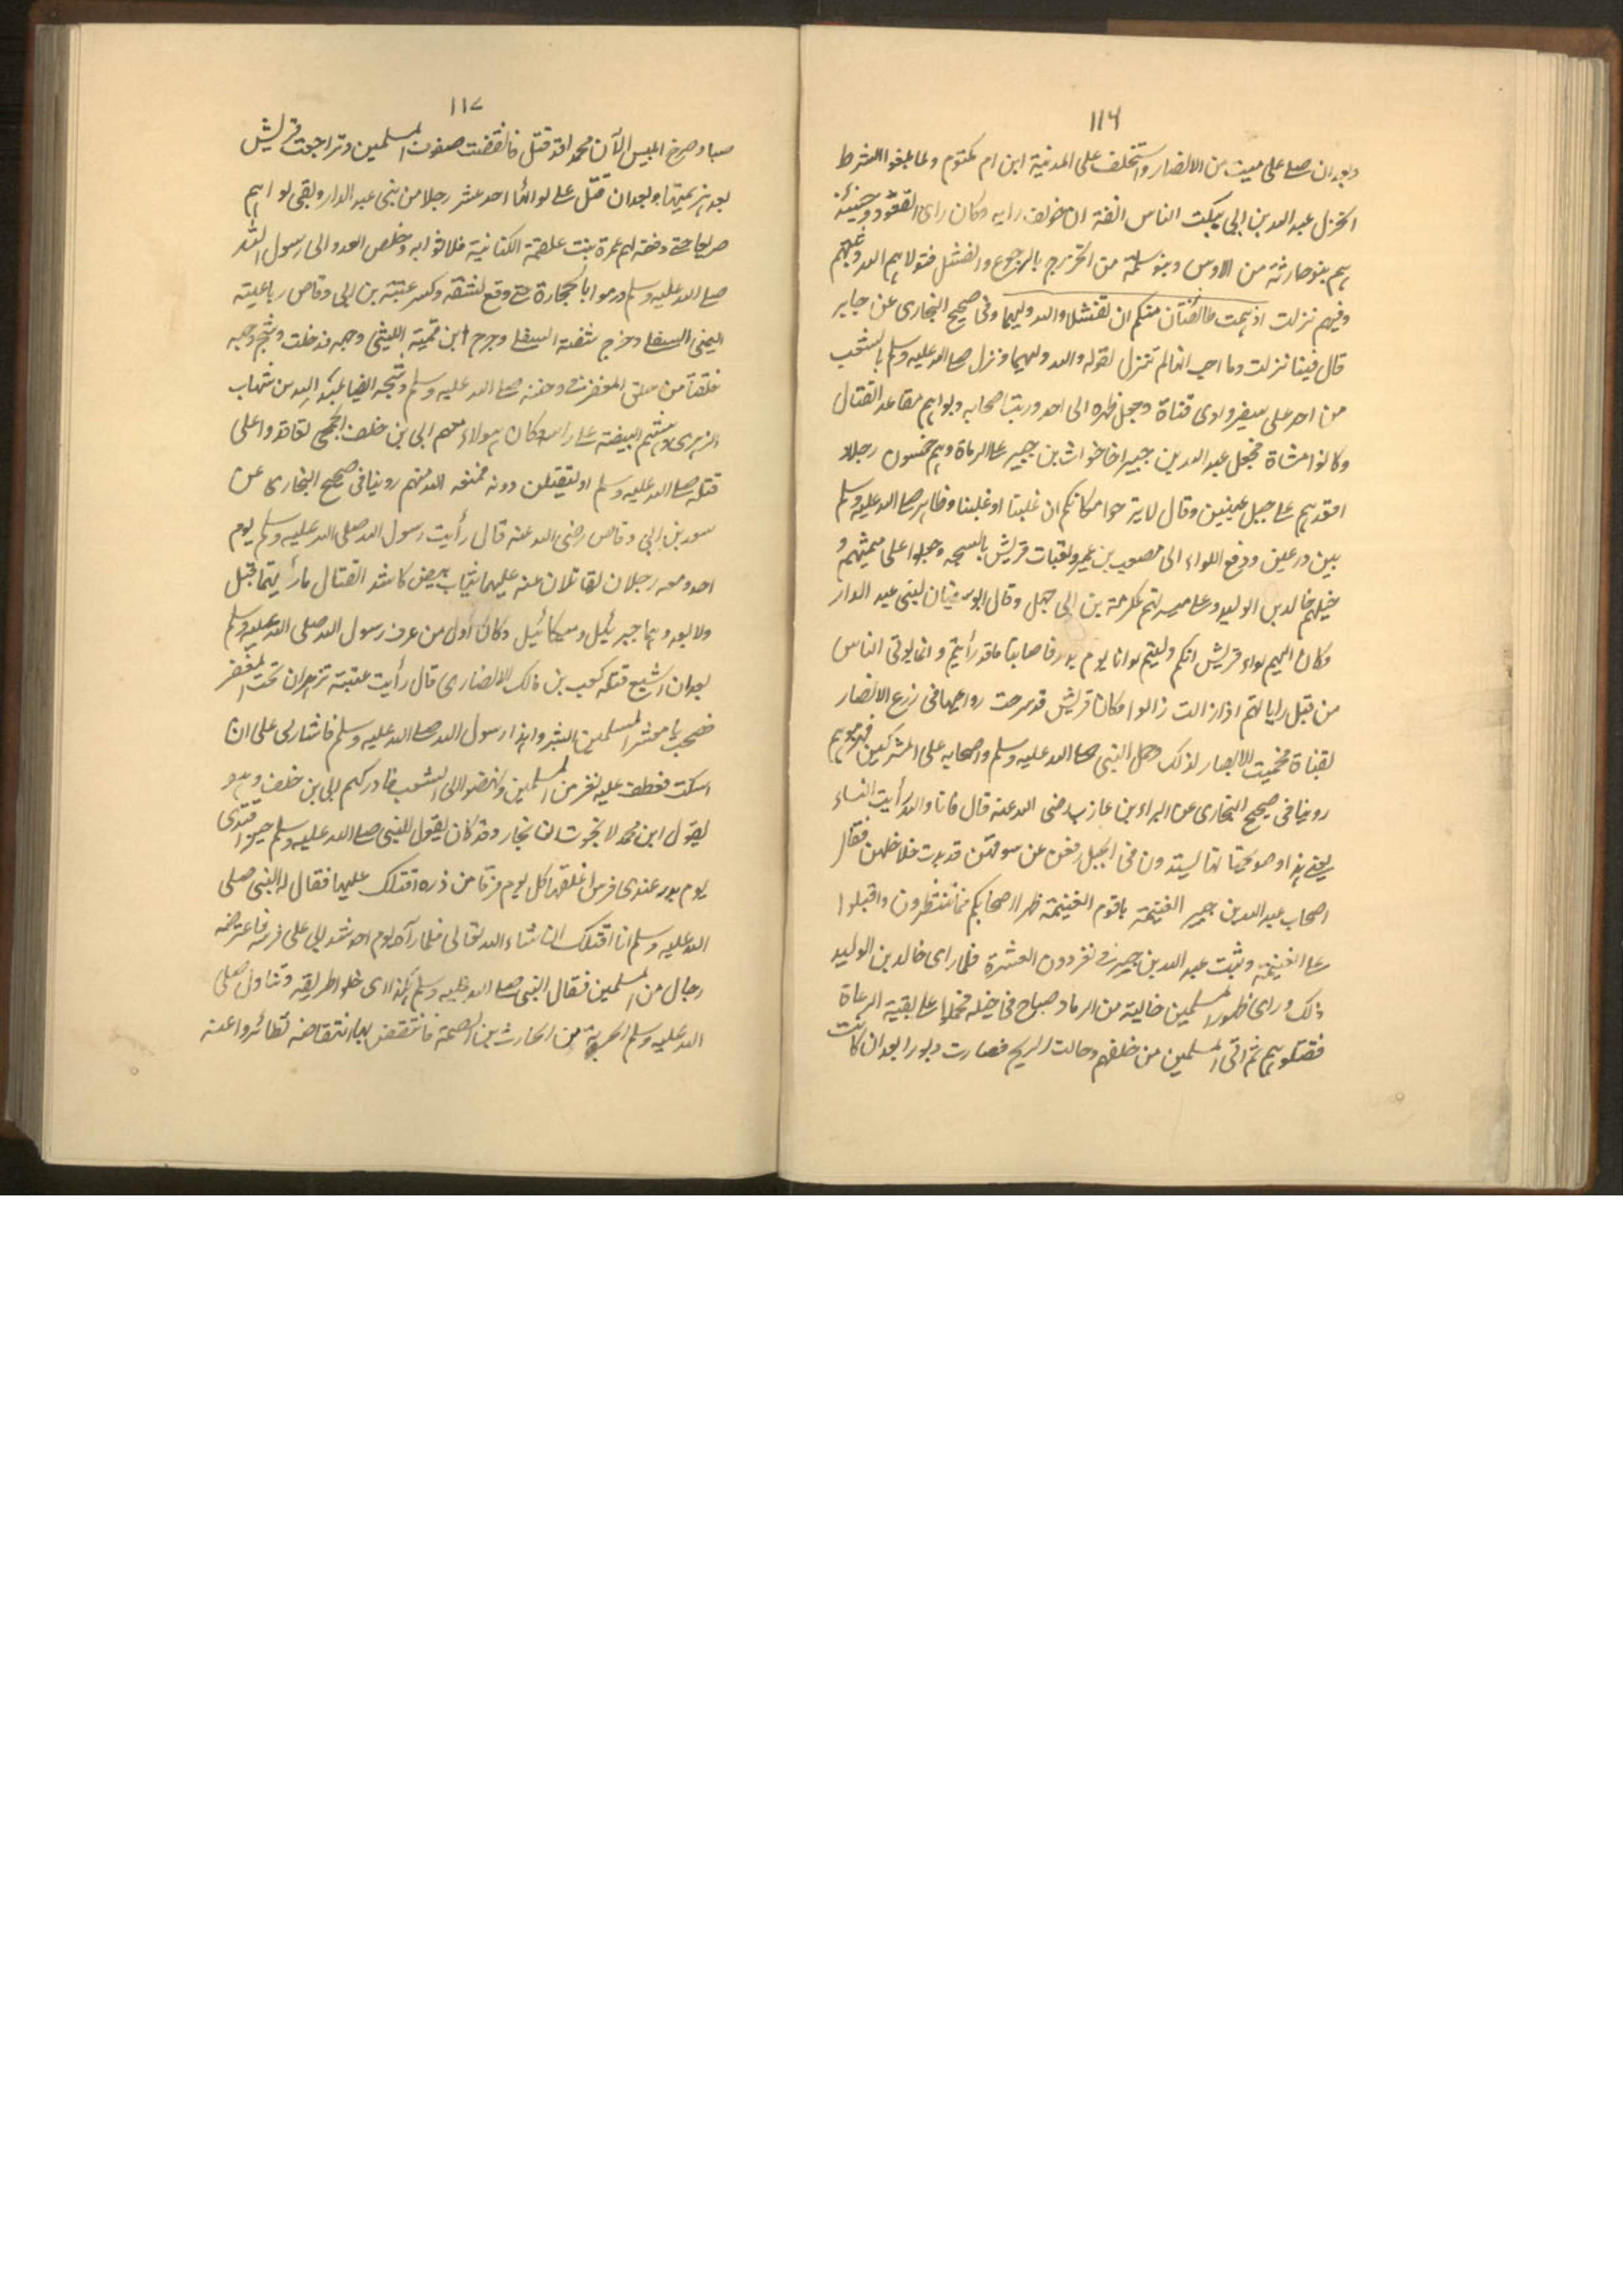 ١١٦
وبعد ان صلے على ميت من الانصار واستخلف على المدينة ابن ام مكتوم ولما بلغوا الشرط
انخزل عبد الله بن ابي بثلث الناس انفة ان خولف رايه وكان راى القعود وحينئذ
هم بنو حارثة من الاوس وبنو سلمة من الخزرج بالرجوع والفشل فتولاهم الله وثبتهم
وفيهم نزلت اذ همت طائفتان منكم ان تفشلا والله وليهما وفى صحيح البخارى عن جابر
قال فينا نزلت وما احب انها لم تنزل لقوله والله وليهما ونزل صلے الله عليه وسلم بالشعب
من احد على شفير وادى قناة وجعل ظهره الى احد ورتب اصحابه وبواهم مقاعد القتال
وكانوا مشاة فجعل عبد الله بن جبير اخا خوات بن جبير على الرماة وهم خمسون رجلا
اقعدهم على جبل عينين وقال لا تبرحوا مكانكم ان غلبنا او غلبنا وظاهر صلے الله عليه وسلم
بين درعين ودفع اللواء الى مصعب بن عمير وتعبات قريش بالسبخه وجعلوا على ميمنتهم و
خيلهم خالد بن الوليد وعلى ميسرتهم عكرمة بن ابى جهل وقال ابو سفيان لبنى عبد الدار
وكان اليهم لواء قريش انكم وليتم لوانا يوم بدر فاصابنا ما قد رأيتم وانما يوتى الناس
من قبل راياتهم اذا زالت زالوا وكان قريش قد سرحت رواعيها فى زرع الانصار
بقناة فحميت الانصار لذلك وحمل النبى صلے الله عليه وسلم واصحابه على المشركين فهزموهم
روينا فى صحيح البخارى عن البراء بن عازب رضى الله عنه قال فانا والله رأيت النساء
يعنے هندا وصواحباتها يشتدون فى الجبل رفعن عن سوقهن قد بدت خلاخلهن فقال
اصحاب عبد الله بن جبير الغنيمة ياقوم الغنيمة ظهر اصحابكم فما تنتظرون واقبلوا
على الغنيمة وثبت عبد الله بن جبير فى نفر دون العشرة فلما راى خالد بن الوليد
ذلك وراى ظهور المسلمين خالية من الرماة صباح فى خيله فحملوا على بقية الرماة
فقتلوهم ثم اتى المسلمين من خلفهم وحالت الريح فصارت دبورا بعد ان كانت
١١٧
صبا وصرخ ابليس الا ان محمدا قد قتل فانقضت صفوف المسلمين وتراجعت قريش
بعد هزيمتها وبعد ان قتل على لوائها احد عشر رجلا من بنى عبد الدار وبقى لواهم
صريعا حتے رفعته لهم عمرة بنت علقمة الكنانية فلاثوا به وخلص العدو الى رسول الله
صلے الله عليه وسلم ورموا بالحجارة حتے وقع لشقه وكسر عتبة بن ابى وقاص رباعيته
اليمنى السفلے وجرح شفته السفلے وجرح ابن قمئة الليثى وجهه فدخلت وشج وجهه
حلقتا من حلق المغفر فى وجنته صلے الله عليه وسلم وشجه ايضا عبد الله بن شهاب
الزهرى وهشم البيضة على راسه وكان هولاء معهم ابى بن خلف الجمحى تعاقدوا على
قتله صلے الله عليه وسلم او ليقتلن دونه فمنعه الله منهم روينا فى صحيح البخارى عن
سعد بن ابى وقاص رضى الله عنه قال رأيت رسول الله صلى الله عليه وسلم يوم
احد ومعه رجلان يقاتلان عنه عليهما ثياب بيض كاشد القتال ما رأيتهما قبل
ولا بعد وهما جبرئيل وميكائيل وكان اول من عرف رسول الله صلى الله عليه وسلم
بعد ان اشيع قتله كعب بن مالك الانصارى قال رأيت عينيه تزهران تحت المغفر
فصحت يا معشر المسلمين ابشروا هذا رسول الله صلے الله عليه وسلم فاشار لى على ان
اسكت فعطف عليه نفر من المسلمين ونهضوا الى الشعب فادركهم ابى بن خلف وهو
يقول اين محمد لا نجوت ان نجا وقد كان يقول للنبى صلے الله عليه وسلم حين افتدى
يوم بدر عندى فرس اعلفها كل يوم فرقا من ذره اقتلك عليها فقال له النبى صلى
الله عليه وسلم انا اقتلك ان شاء الله تعالى فلما رآه يوم احد شد ابى على فرسه فاعترضه
رجال من المسلمين فقال النبى صلے الله عليه وسلم هكذا اى خلوا طريقه وتناول صلى
الله عليه وسلم الحربة من الحارث بن الصمة فانتفض بها انتفاضه تطائروا عنه